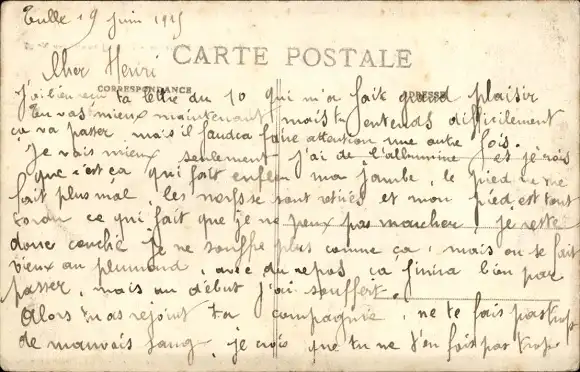 Tulle 19 juin 1915
Cher Henri
CARTE POSTALE
CORRESPONDANCE
ADRESSE
J'ai bien reçu ta lettre du 10 qui m'a fait grand plaisir
Tu vas mieux maintenant mais tu entends difficilement
ça va passer, mais il faudra faire attention une autre fois.
Je vais mieux seulement j'ai de l'albumine et je crois
que c'est ça qui fait enfler ma jambe, le pied ne me
fait plus mal, les nerfs se sont retirés et mon pied est tout
tordu ce qui fait que je ne peux pas marcher, je reste
donc couché je ne souffre plus comme ça, mais on se fait
vieux au plumard, avec du repos ça finira bien par
passer, mais au début j'ai souffert.
Alors tu as rejoint ta compagnie, ne te fais pas trop
de mauvais sang, je crois que tu ne t'en fais pas trop